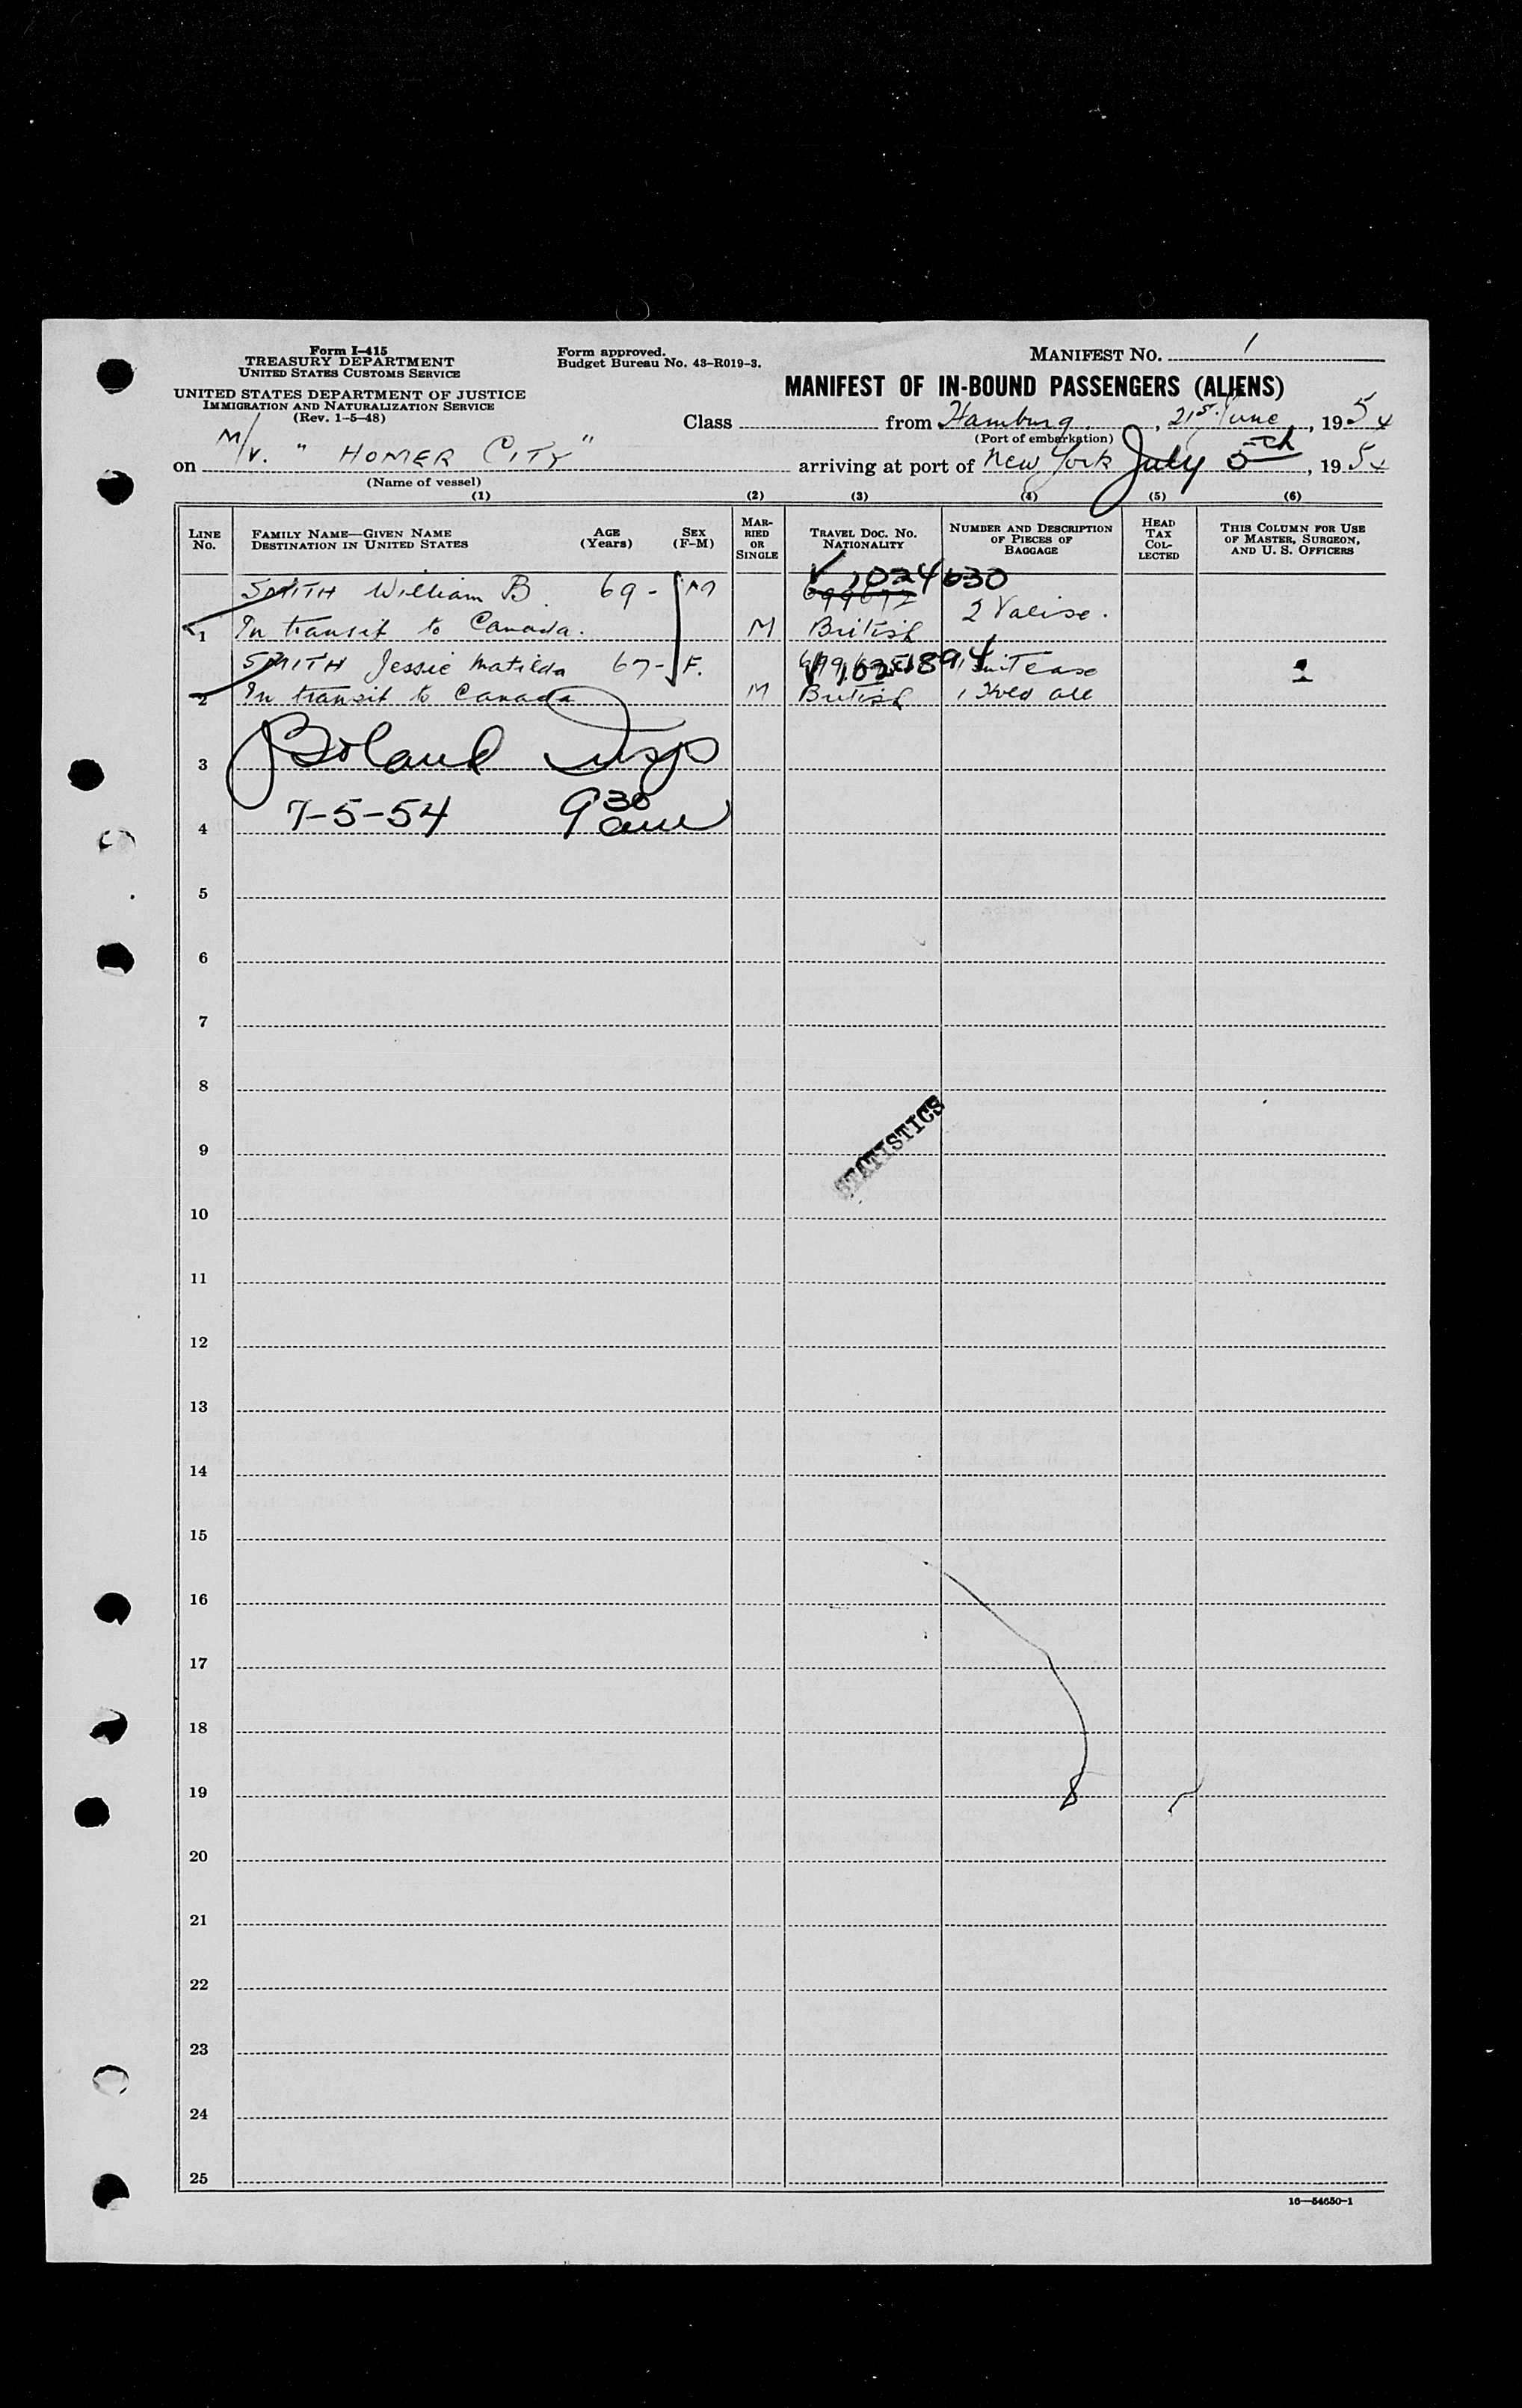 Form I–415
TREASURY DEPARTMENT
UNITED STATES CUSTOMS SERVICE
UNITED STATES DEPARTMENT OF JUSTICE
IMMIGRATION AND NATURALIZATION SERVICE
(Rev. 1–5–48)
Form approved.
Budget Bureau No. 43–R019–3.
MANIFEST NO. 1
MANIFEST OF IN-BOUND PASSENGERS (ALIENS)
Class from Hamburg, 21st June, 1954
(Port of embarkation)
on M/V. "HOMER CITY" arriving at port of New York July 5th, 1954
(Name of vessel)
(1) (2) (3) (4) (5) (6)
LINE NO. FAMILY NAME—GIVEN NAME DESTINATION IN UNITED STATES AGE (Years) SEX (F–M) MARRIED OR SINGLE TRAVEL DOC. NO. NATIONALITY NUMBER AND DESCRIPTION OF PIECES OF BAGGAGE HEAD TAX COLLECTED THIS COLUMN FOR USE OF MASTER, SURGEON, AND U. S. OFFICERS
SMITH William B. 69 - M 1024630 2 Valise.
1 In transit to Canada. M British
SMITH Jessie Matilda 67 - F. 1 Suitcase
2 In transit to Canada M British 1 Hold all
3 Boland Insp
4 7-5-54 9 30 am
5
6
7
8
STATISTICS
9
10
11
12
13
14
15
16
17
18
19
20
21
22
23
24
25
16—54650-1